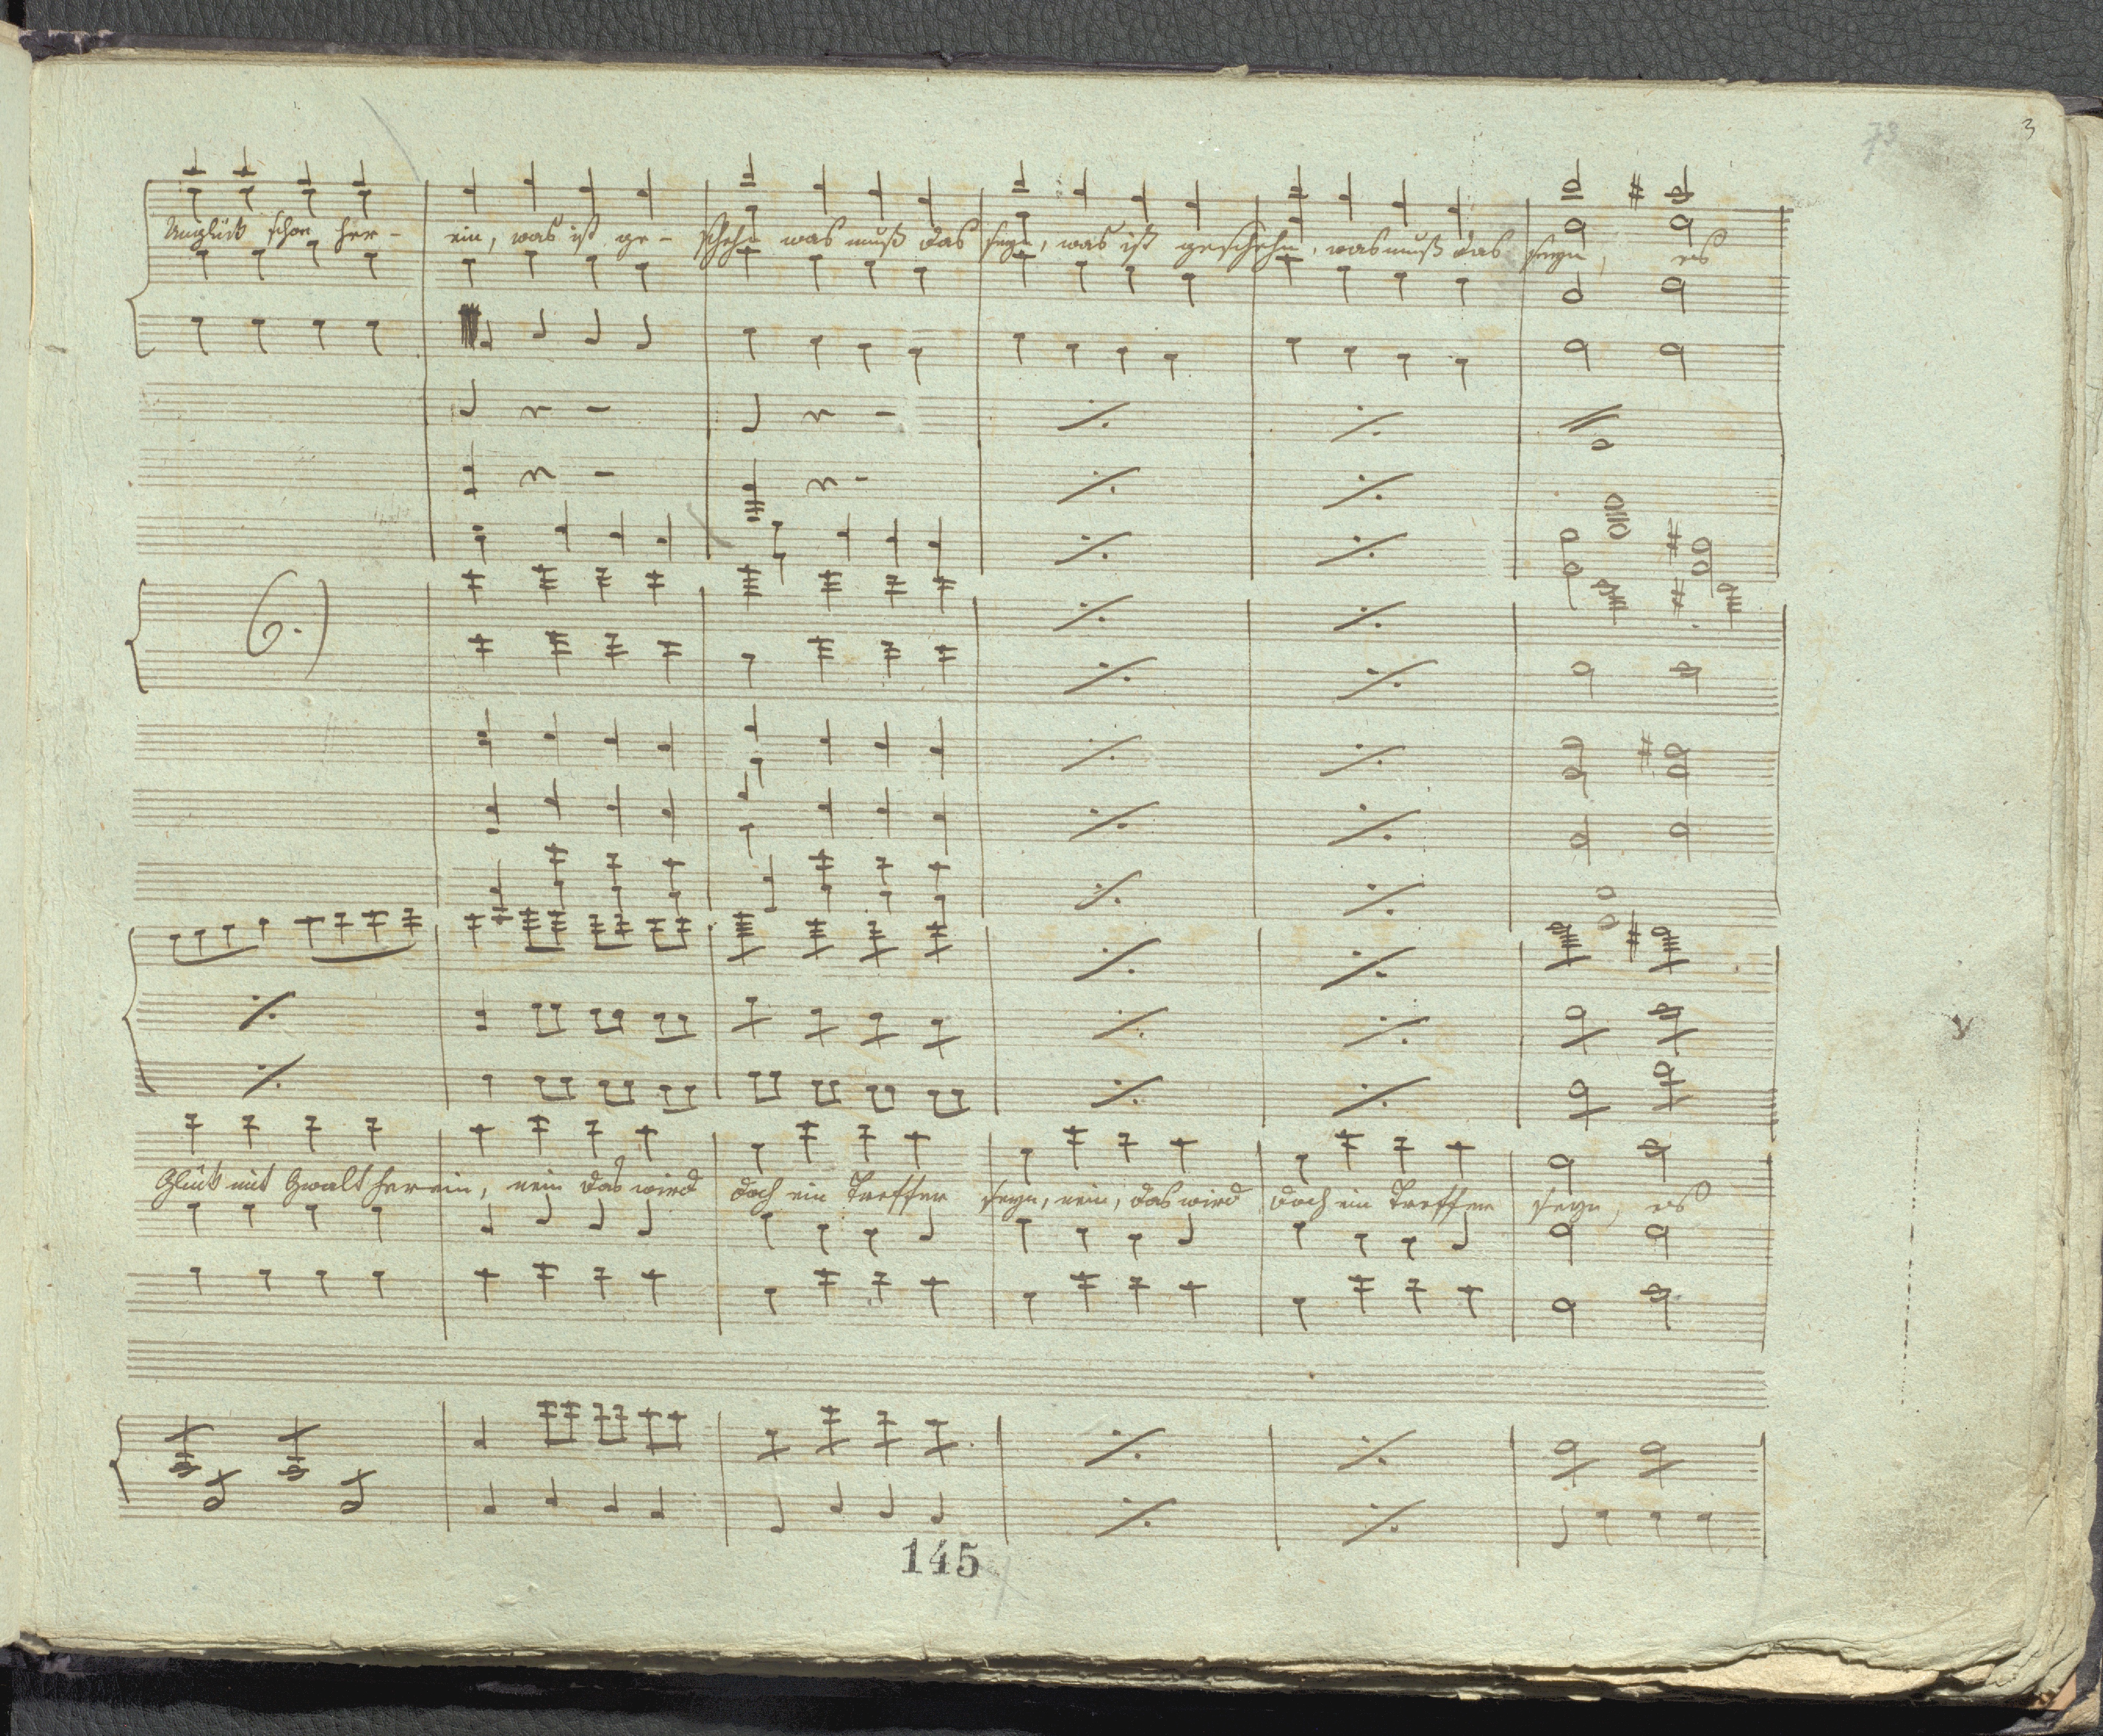 73
3
Unglück schon her- ein, was ist ge- schehn was muß das seyn, was ist geschehn, was muß das seyn, es
6.)
Glück mit Gwalt herein, nein das wird doch ein Treffer seyn, nein, das wird doch ein Treffer seyn, es
145